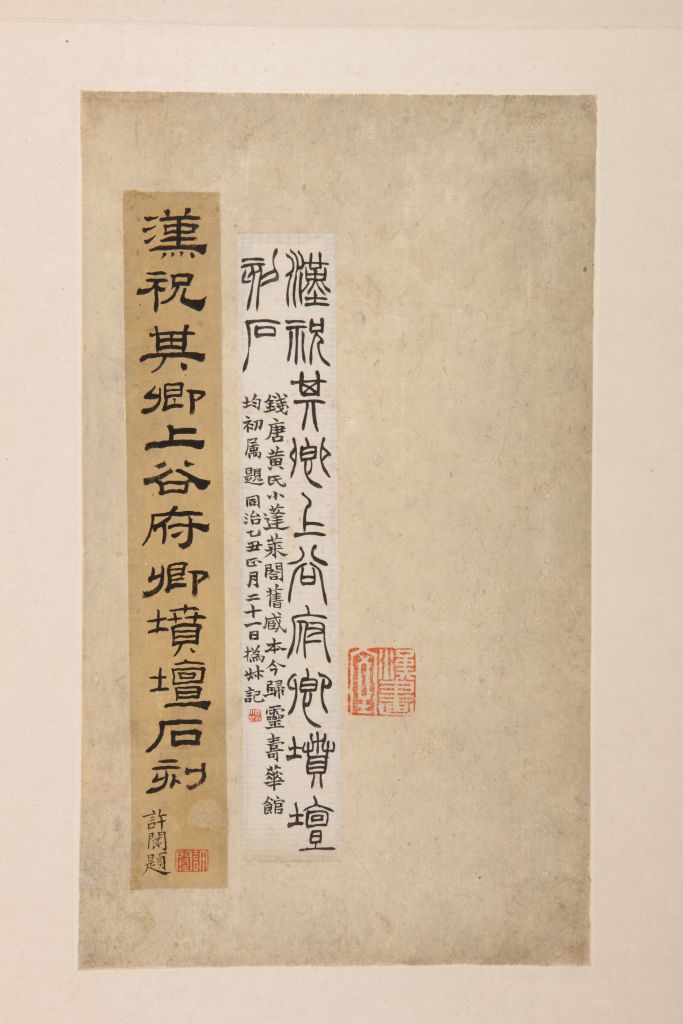 漢祝其卿上谷府卿墳壇
刻石
錢唐黃氏小蓬萊閣舊臧本今歸靈壽華館
均初屬題同治乙丑正月二十一日撝叔記
漢祝其卿上谷府卿墳壇石刻
許 題